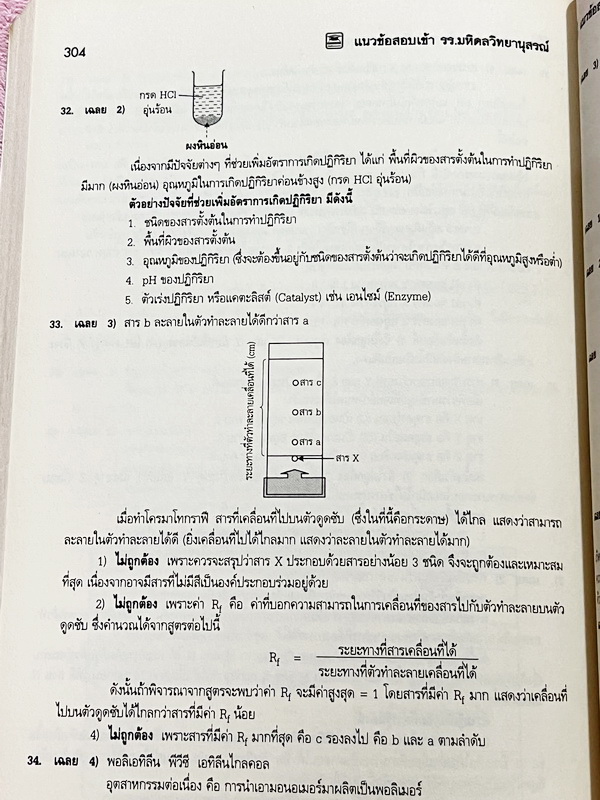 304
แนวข้อสอบเข้า รร.มหิดลวิทยานุสรณ์
กรด HCl
32. เฉลย 2) อุ่นร้อน
ผงหินอ่อน
เนื่องจากมีปัจจัยต่างๆ ที่ช่วยเพิ่มอัตราการเกิดปฏิกิริยา ได้แก่ พื้นที่ผิวของสารตั้งต้นในการทำปฏิกิริยา
มีมาก (ผงหินอ่อน) อุณหภูมิในการเกิดปฏิกิริยาค่อนข้างสูง (กรด HCl อุ่นร้อน)
ตัวอย่างปัจจัยที่ช่วยเพิ่มอัตราการเกิดปฏิกิริยา มีดังนี้
1. ชนิดของสารตั้งต้นในการทำปฏิกิริยา
2. พื้นที่ผิวของสารตั้งต้น
3. อุณหภูมิของปฏิกิริยา (ซึ่งจะต้องขึ้นอยู่กับชนิดของสารตั้งต้นว่าจะเกิดปฏิกิริยาได้ดีที่อุณหภูมิสูงหรือต่ำ)
4. pH ของปฏิกิริยา
5. ตัวเร่งปฏิกิริยา หรือแคตะลิสต์ (Catalyst) เช่น เอนไซม์ (Enzyme)
33. เฉลย 3) สาร b ละลายในตัวทำละลายได้ดีกว่าสาร a
ระยะทางที่ตัวทำละลายเคลื่อนที่ได้ (cm)
สาร c
สาร b
สาร a
สาร X
เมื่อทำโครมาโทกราฟี สารที่เคลื่อนที่ไปบนตัวดูดซับ (ซึ่งในที่นี้คือกระดาษ) ได้ไกล แสดงว่าสามารถ
ละลายในตัวทำละลายได้ดี (ยิ่งเคลื่อนที่ไปได้ไกลมาก แสดงว่าละลายในตัวทำละลายได้มาก)
1) ไม่ถูกต้อง เพราะควรจะสรุปว่าสาร X ประกอบด้วยสารอย่างน้อย 3 ชนิด จึงจะถูกต้องและเหมาะสม
ที่สุด เนื่องจากอาจมีสารที่ไม่มีสีเป็นองค์ประกอบร่วมอยู่ด้วย
2) ไม่ถูกต้อง เพราะค่า Rf คือ ค่าที่บอกความสามารถในการเคลื่อนที่ของสารไปกับตัวทำละลายบนตัว
ดูดซับ ซึ่งคำนวณได้จากสูตรต่อไปนี้
Rf = ระยะทางที่สารเคลื่อนที่ได้
ระยะทางที่ตัวทำละลายเคลื่อนที่ได้
ดังนั้นถ้าพิจารณาจากสูตรจะพบว่าค่า Rf จะมีค่าสูงสุด = 1 โดยสารที่มีค่า Rf มาก แสดงว่าเคลื่อนที่
ไปบนตัวดูดซับได้ไกลกว่าสารที่มีค่า Rf น้อย
4) ไม่ถูกต้อง เพราะสารที่มีค่า Rf มากที่สุด คือ c รองลงไป คือ b และ a ตามลำดับ
34. เฉลย 4) พอลิเอทิลีน พีวีซี เอทิลีนไกลคอล
อุตสาหกรรมต่อเนื่อง คือ การนำเอามอนอเมอร์มาผลิตเป็นพอลิเมอร์